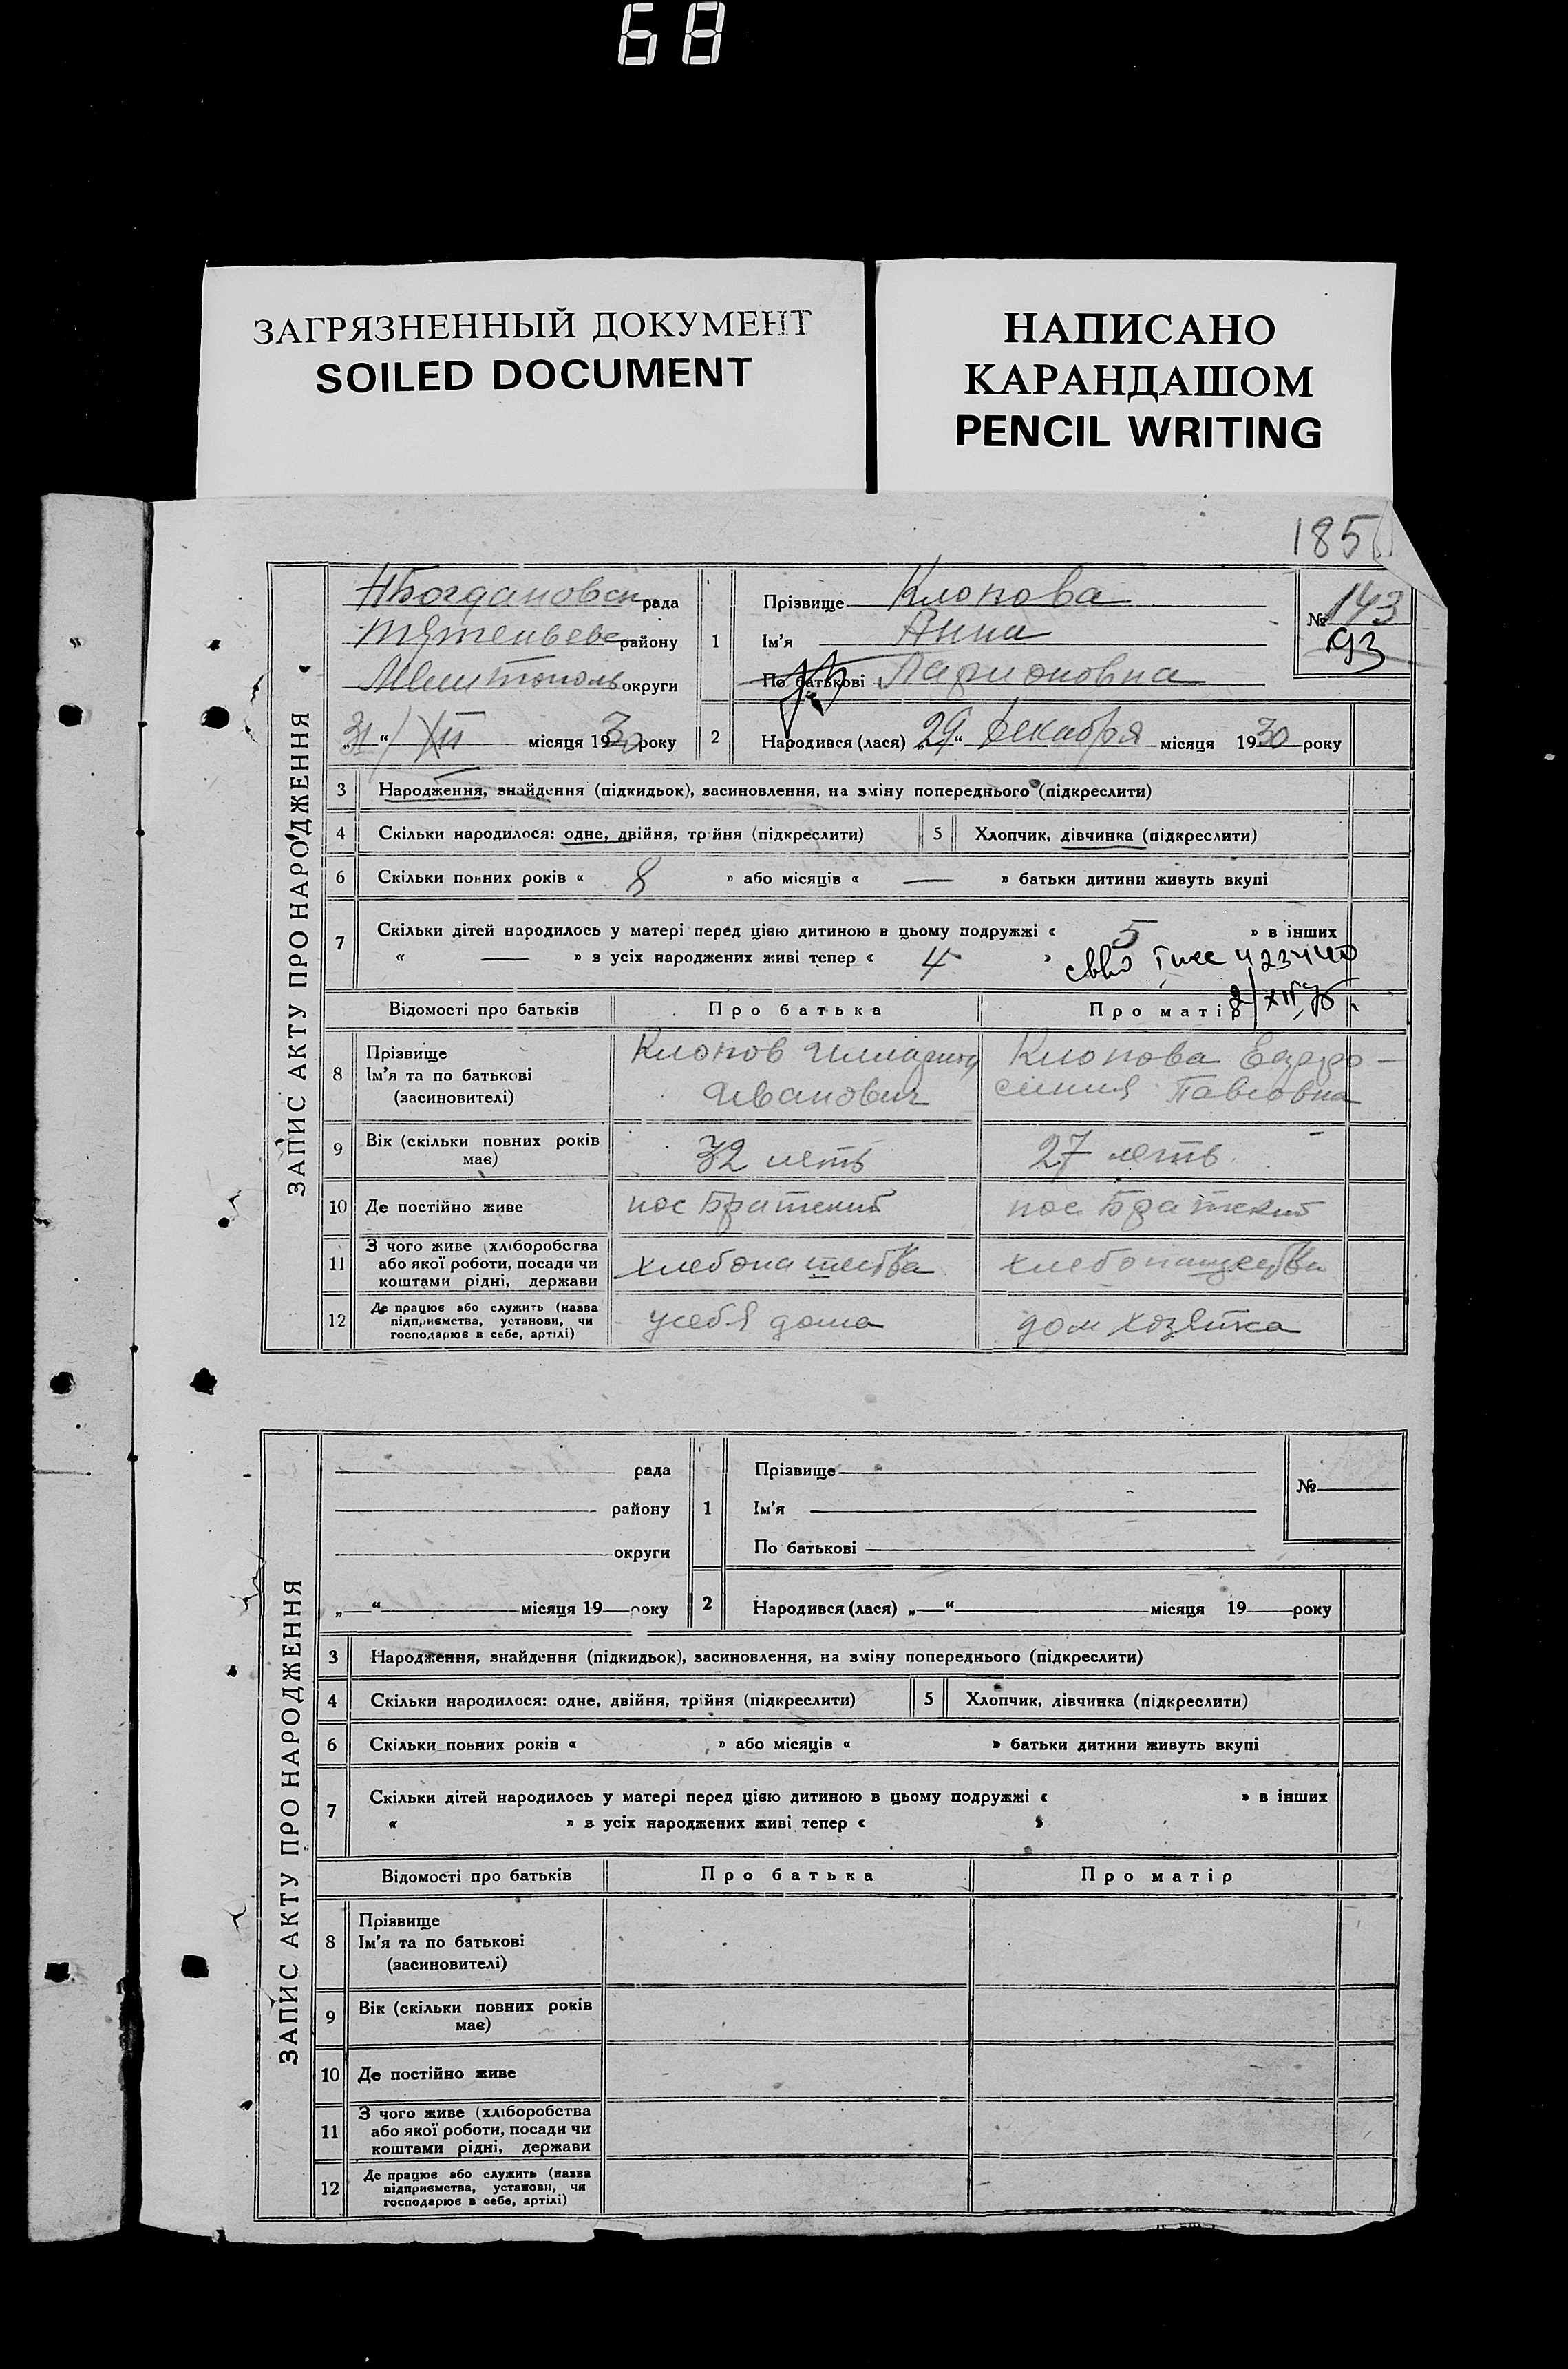 68
ЗАГРЯЗНЕННЫЙ ДОКУМЕНТ
SOILED DOCUMENT
НАПИСАНО
КАРАНДАШОМ
PENCIL WRITING
185
ЗАПИС АКТУ ПРО НАРОДЖЕННЯ
НБогдановск рада
району
округи
31/XII місяця 1930 року
1
Прізвище Клопова
Ім'я Анна
По батькові Ларионовна
№ 143
93
2
Народився (лася) „29“ декабря місяця 1930 року
3 Народження, знайдення (підкидьок), засиновлення, на зміну попереднього (підкреслити)
4 Скільки народилося: одне, двійня, трійня (підкреслити) 5 Хлопчик, дівчинка (підкреслити)
6 Скільки повних років « 8 » або місяців « — » батьки дитини живуть вкупі
7 Скільки дітей народилось у матері перед цією дитиною в цьому подружжі « 5 » в інших
« — » з усіх народжених живі тепер « 4 »
Відомості про батьків Про батька Про матір
8 Прізвище
Ім'я та по батькові
(засиновителі)
Клопов
Иванович
Клопова Евфро-
синия Павловна
9 Вік (скільки повних років
має)
32 леть
27 леть
10 Де постійно живе пос Братский пос Братский
11 З чого живе (хліборобства
або якої роботи, посади чи
коштами рідні, держави
хлебопашества хлебопашества
12 Де працює або служить (назва
підприємства, установи, чи
господарює в себе, артілі)
у себя дома дом хозяйка
ЗАПИС АКТУ ПРО НАРОДЖЕННЯ
рада
району
округи
„ “ місяця 19 року
1
Прізвище
Ім'я
По батькові
№
2
Народився (лася) „ “ місяця 19 року
3 Народження, знайдення (підкидьок), засиновлення, на зміну попереднього (підкреслити)
4 Скільки народилося: одне, двійня, трійня (підкреслити) 5 Хлопчик, дівчинка (підкреслити)
6 Скільки повних років « » або місяців « » батьки дитини живуть вкупі
7 Скільки дітей народилось у матері перед цією дитиною в цьому подружжі « » в інших
« » з усіх народжених живі тепер « »
Відомості про батьків Про батька Про матір
8 Прізвище
Ім'я та по батькові
(засиновителі)
9 Вік (скільки повних років
має)
10 Де постійно живе
11 З чого живе (хліборобства
або якої роботи, посади чи
коштами рідні, держави
12 Де працює або служить (назва
підприємства, установи, чи
господарює в себе, артілі)